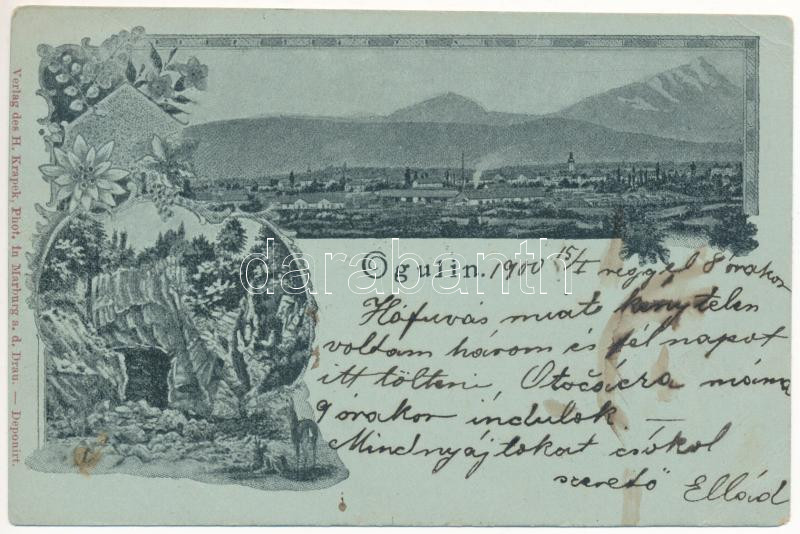 Verlag des H. Krapek, Phot. in Marburg a. d. Drau. — Deponirt.
Ogulin. 1900 15/I reggel 8 órakor
Hófuvás miatt kénytelen
voltam három és fél napot
itt tölteni. Otočácra
9 órakor indulok. —
Mindnyájtokat csókol
szerető Ellád
darabanth